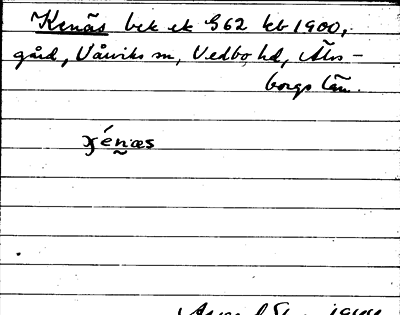 Kenäs bek ek G62 kb 1900,
gård, Vårviks sn, Vedbo hd, Älvs-
borgs län.
ɣénæs